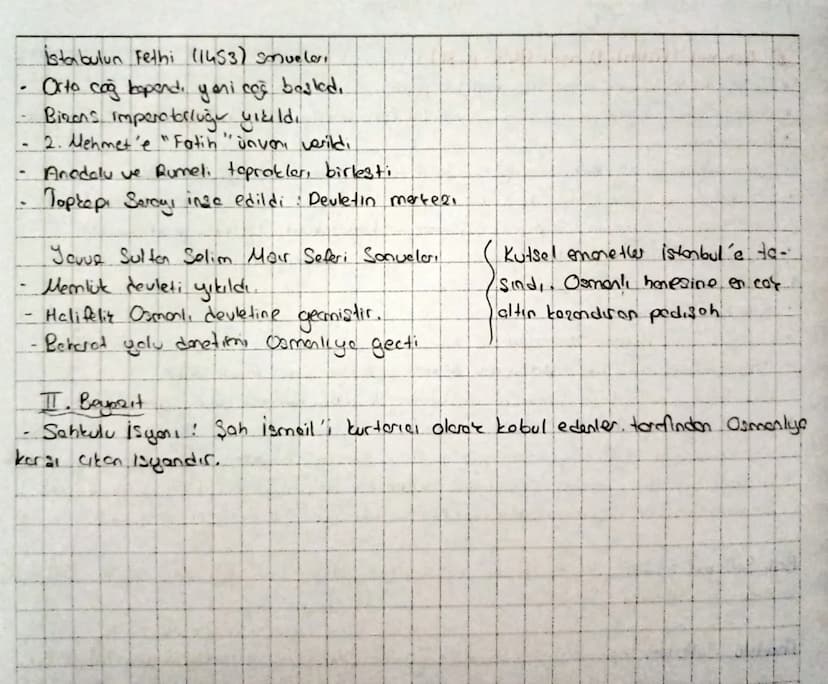 İstabulun Fethi (1453) sonuçları
- Orta çağ kapandı yeni çağ başladı
- Bizans imparatorluğu yıkıldı
- 2. Mehmet'e "Fatih" ünvanı verildi
- Anadolu ve Rumeli toprakları birleşti
- Topkapı Sarayı inşa edildi : Devletin merkezi
Yavuz Sultan Selim Mısır Seferi Sonuçları
- Memlük devleti yıkıldı
- Halifelik Osmanlı devletine geçmiştir.
- Baharat yolu denetimi Osmanlıya geçti
Kutsal emanetler İstanbul'a ta-
şındı. Osmanlı hanesine en çok
altın kazandıran padişah
II. Beyazıt
- Şahkulu isyanı : Şah İsmail'i kurtarıcı olarak kabul edenler tarafından Osmanlıya
karşı çıkan isyandır.